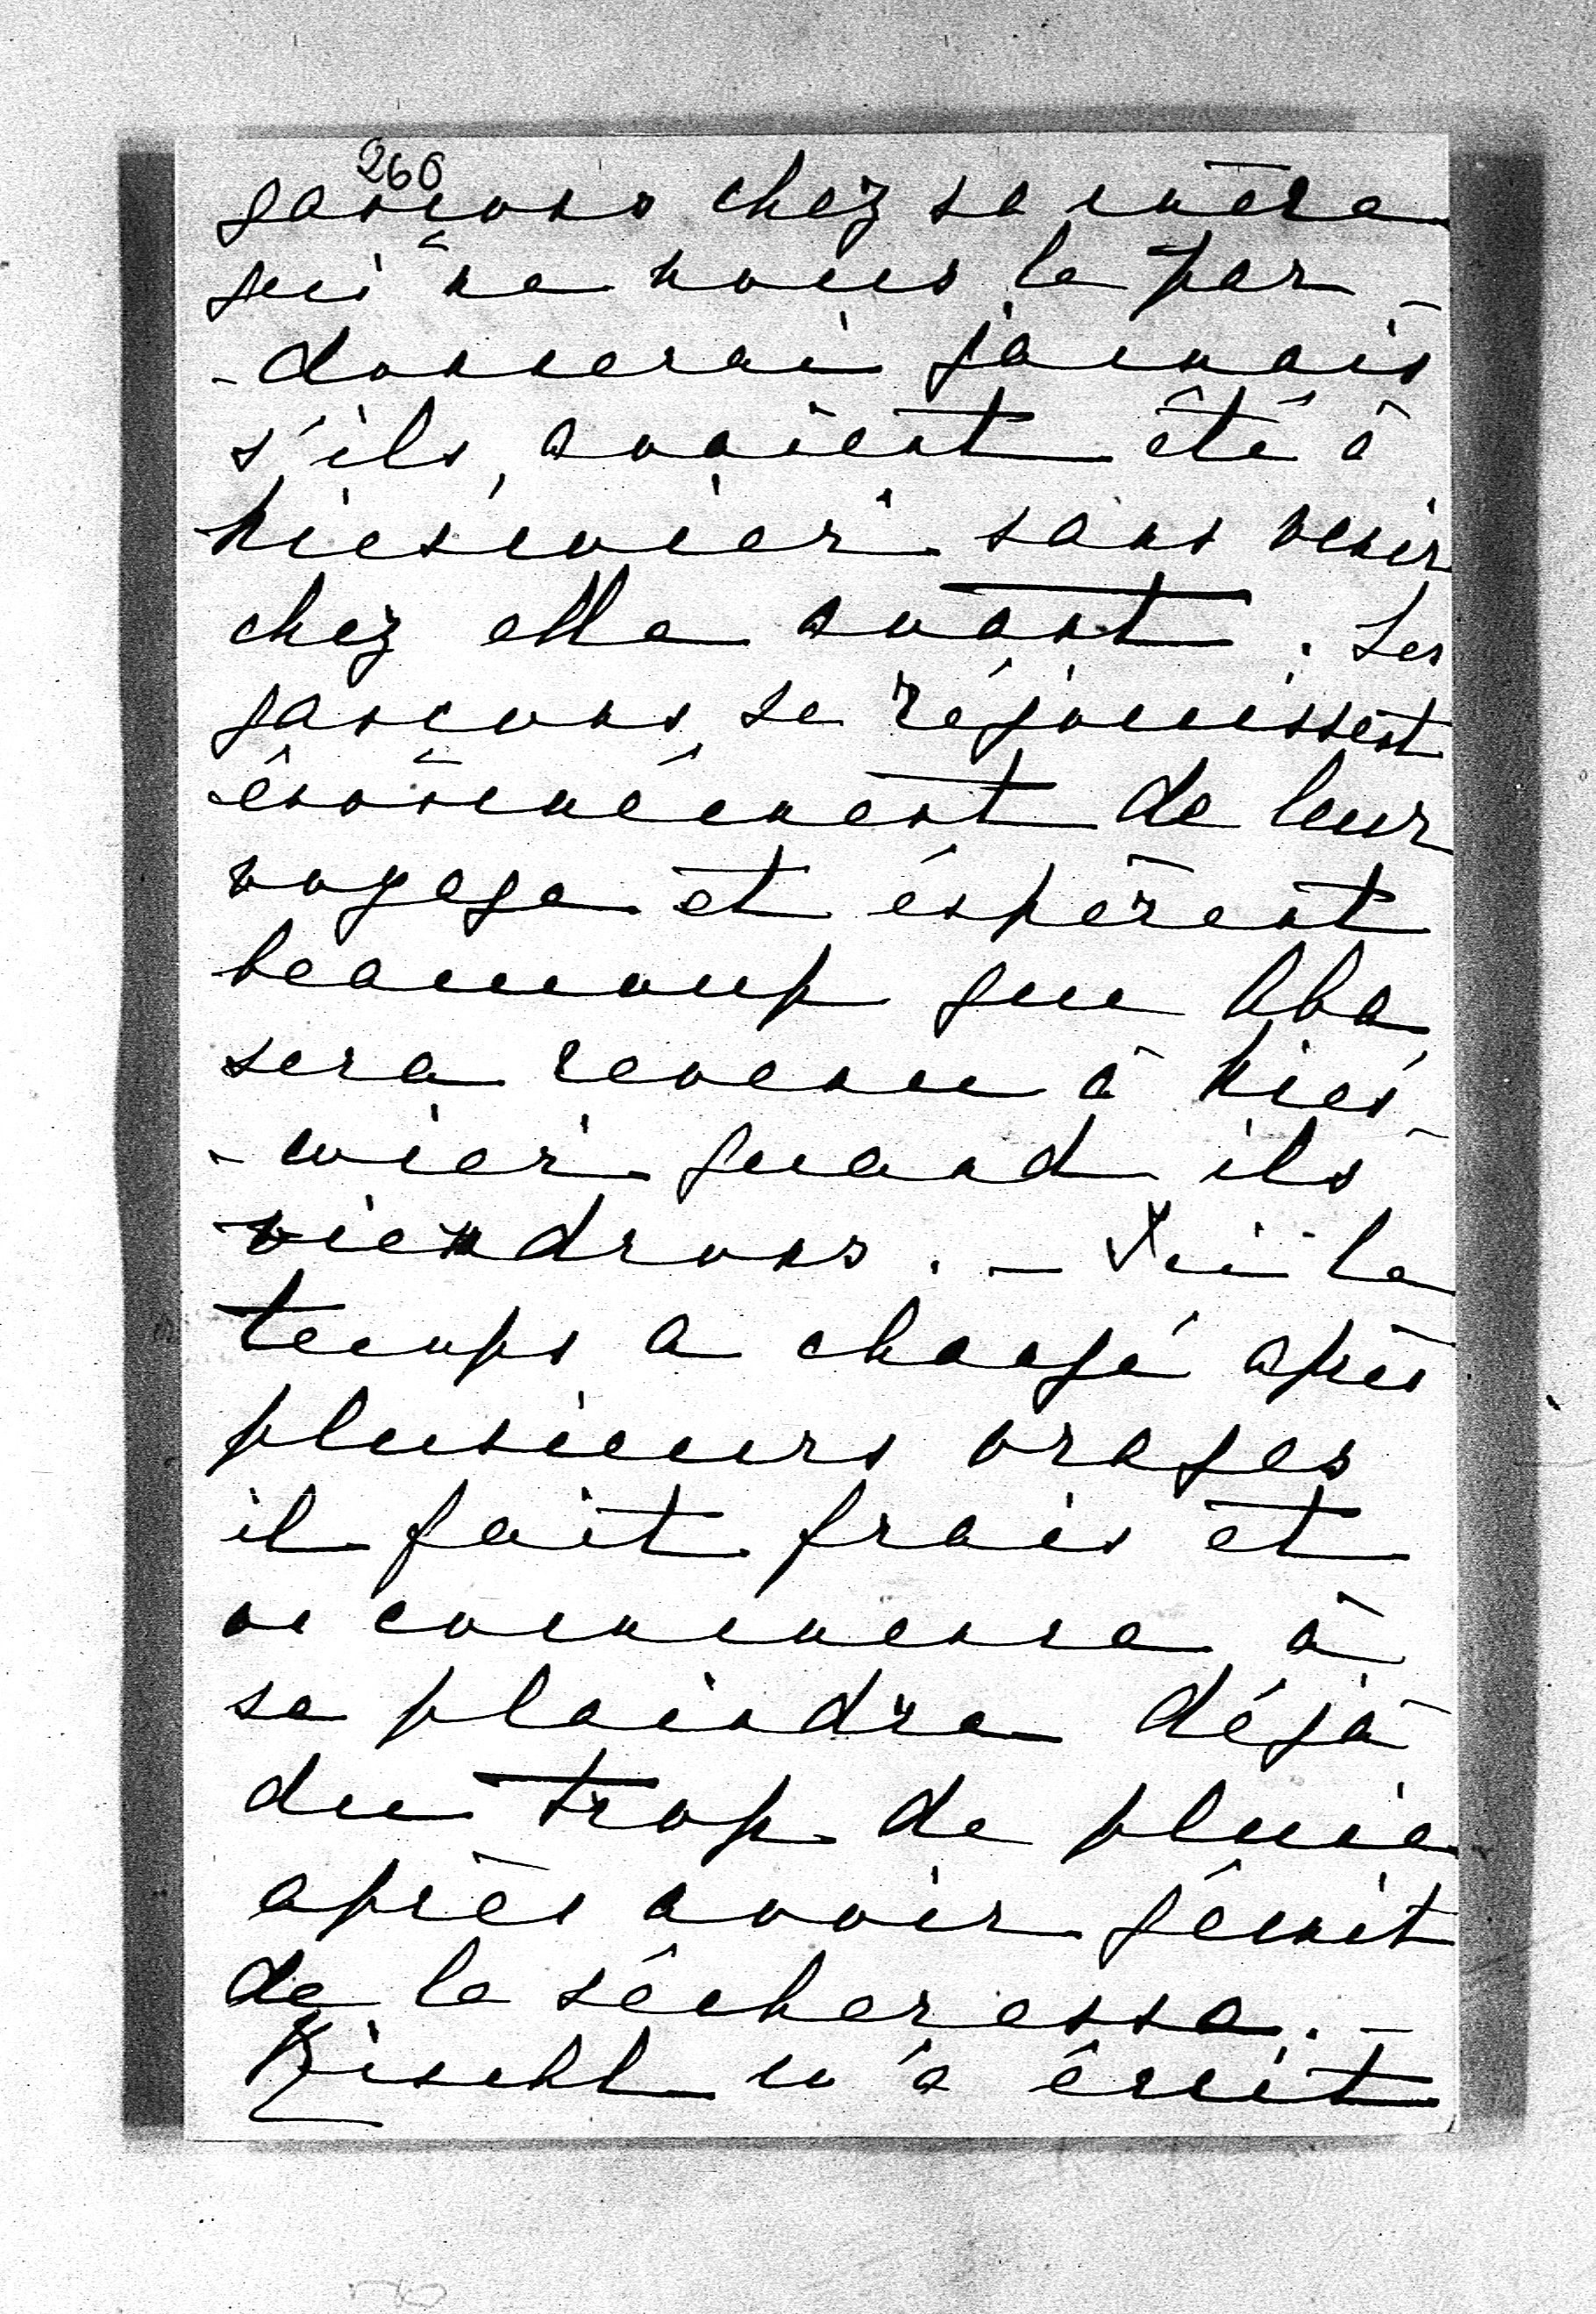 260
garçons chez sa mère
qui ne nous le par-
-donnerai jamais
s'ils avaient été à
Nieswier sans venir
chez elle avant. Les
garçons se réjouissent
énormément de leur
voyage et éspèrent
beaucoup que Aba
sera revenu à Nies-
-wier quand ils
viendrons. – Ici le
temps a changé après
plusieurs orages
il fait frais et
on commence à
se plaindre déjà
du trop de pluie
après avoir gémit
de la sécheresse. –
m'a écrit